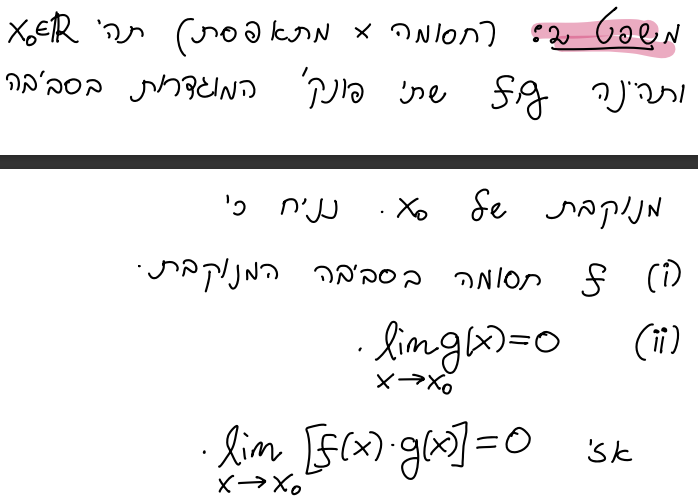 משפט 2: (חסומה × מתאפסת) תהי x₀∈ℝ
ותהיינה f,g שתי פונק' המוגדרות בסביבה
מנוקבת של x₀. נניח כי
(i) f חסומה בסביבה המנוקבת.
(ii) lim_{x→x₀} g(x)=0.
אזי lim_{x→x₀} [f(x)·g(x)]=0.